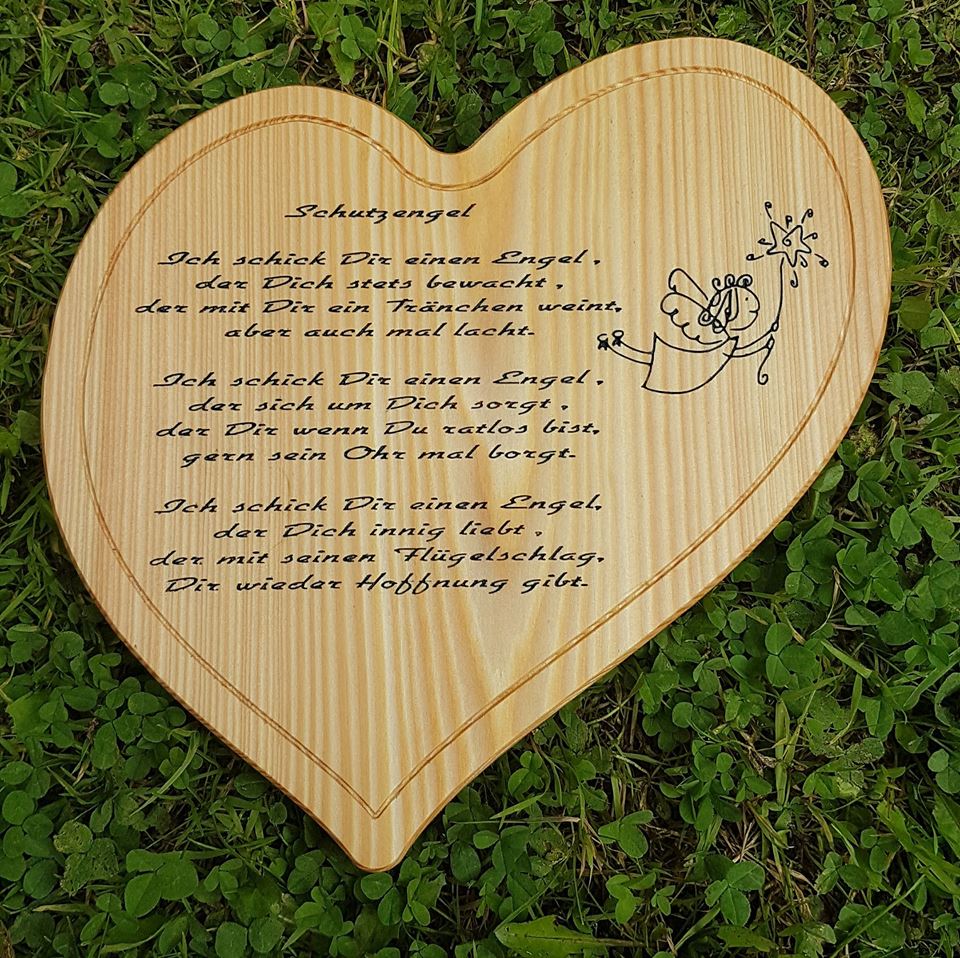 Schutzengel
Ich schick Dir einen Engel,
der Dich stets bewacht,
der mit Dir ein Tränchen weint,
aber auch mal lacht.
Ich schick Dir einen Engel,
der sich um Dich sorgt,
der Dir wenn Du ratlos bist,
gern sein Ohr mal borgt.
Ich schick Dir einen Engel,
der Dich innig liebt,
der mit seinen Flügelschlag,
Dir wieder Hoffnung gibt.